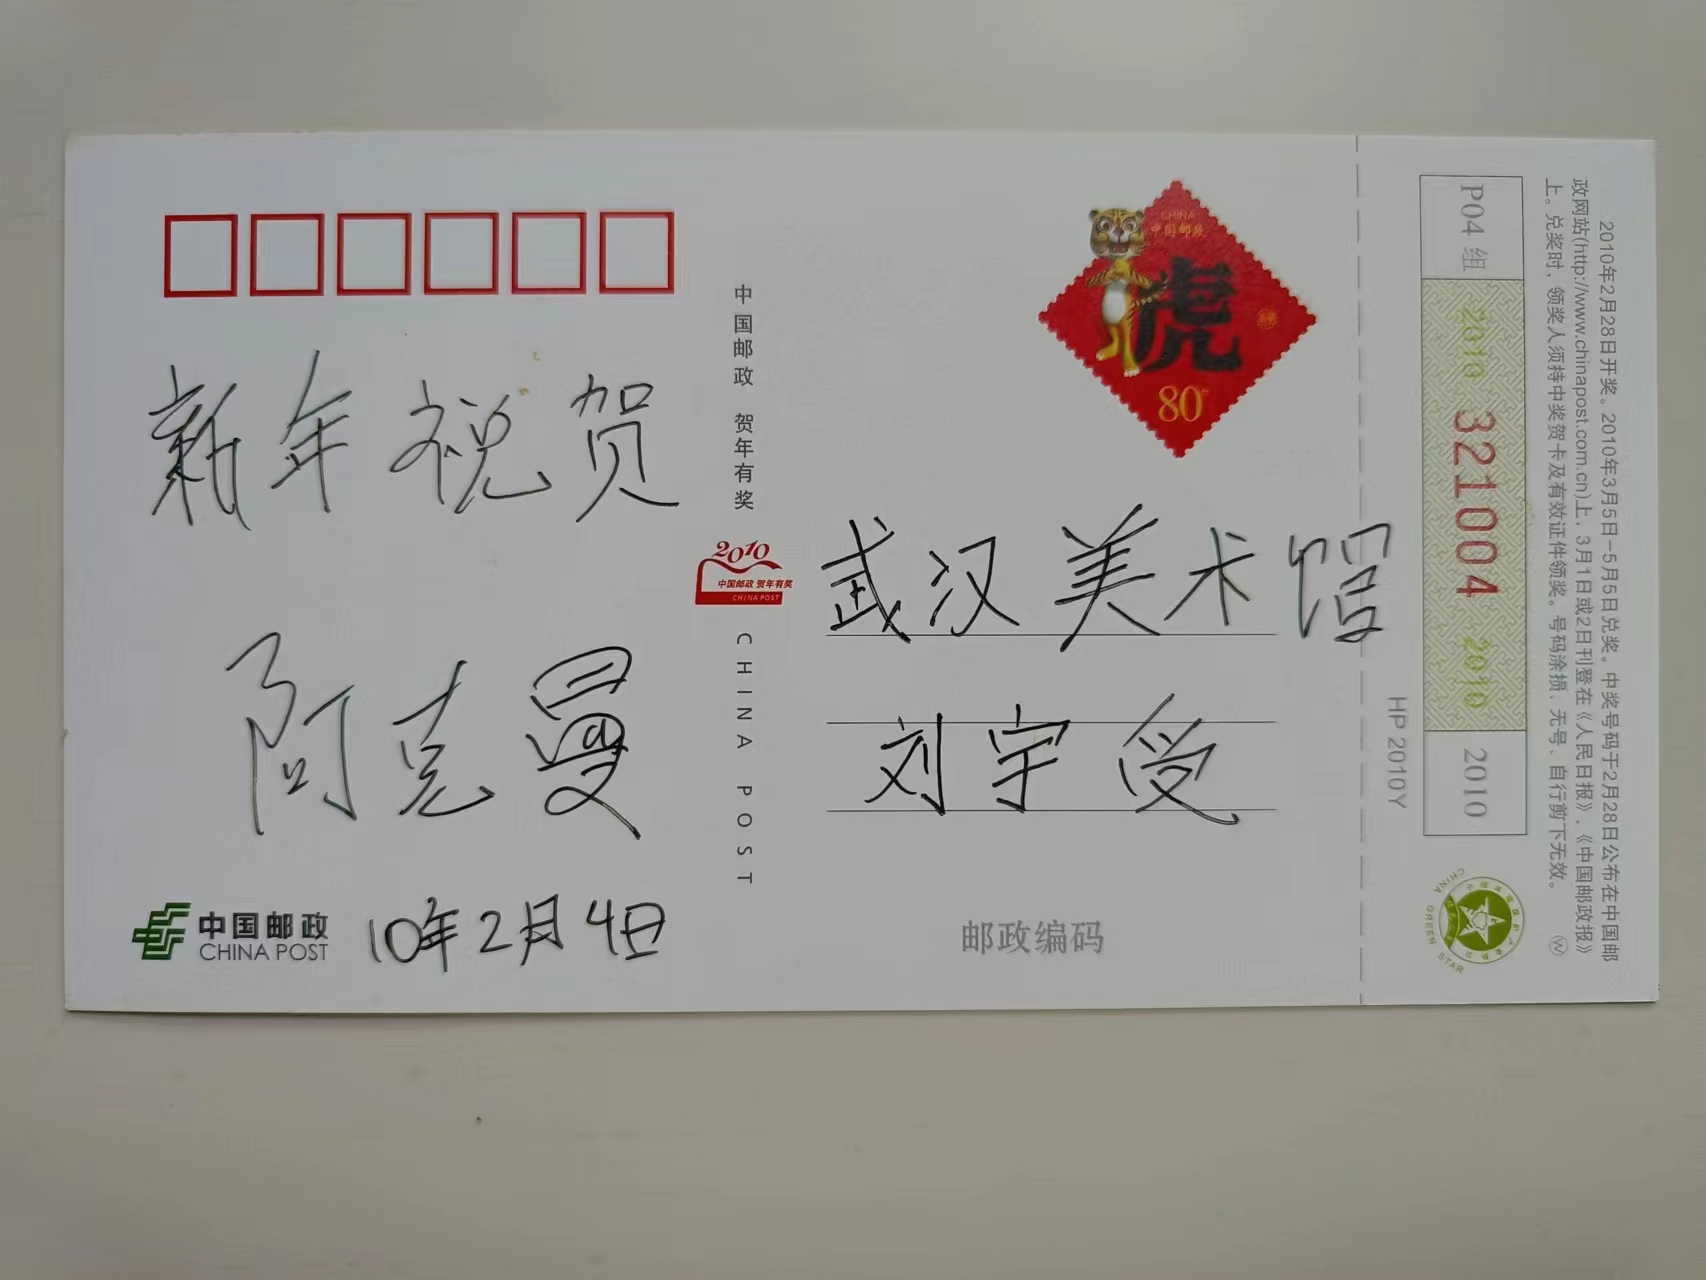 新年祝贺
阿克曼
中国邮政
CHINA POST
10年2月4日
中国邮政 贺年有奖
2010
中国邮政 贺年有奖
CHINA POST
CHINA POST
CHINA
中国邮政
虎
80分
武汉美术馆
刘宇受
邮政编码
HP 2010Y
P04 组
2010
321004
2010
2010
2010年2月28日开奖。2010年3月5日-5月5日兑奖。中奖号码于2月28日公布在中国邮
政网站(http://www.chinapost.com.cn)上、3月1日或2日刊登在《人民日报》、《中国邮政报》
上。兑奖时、领奖人须持中奖贺卡及有效证件领奖。号码涂损、无号、自行剪下无效。
W
CHINA GREEN STAR